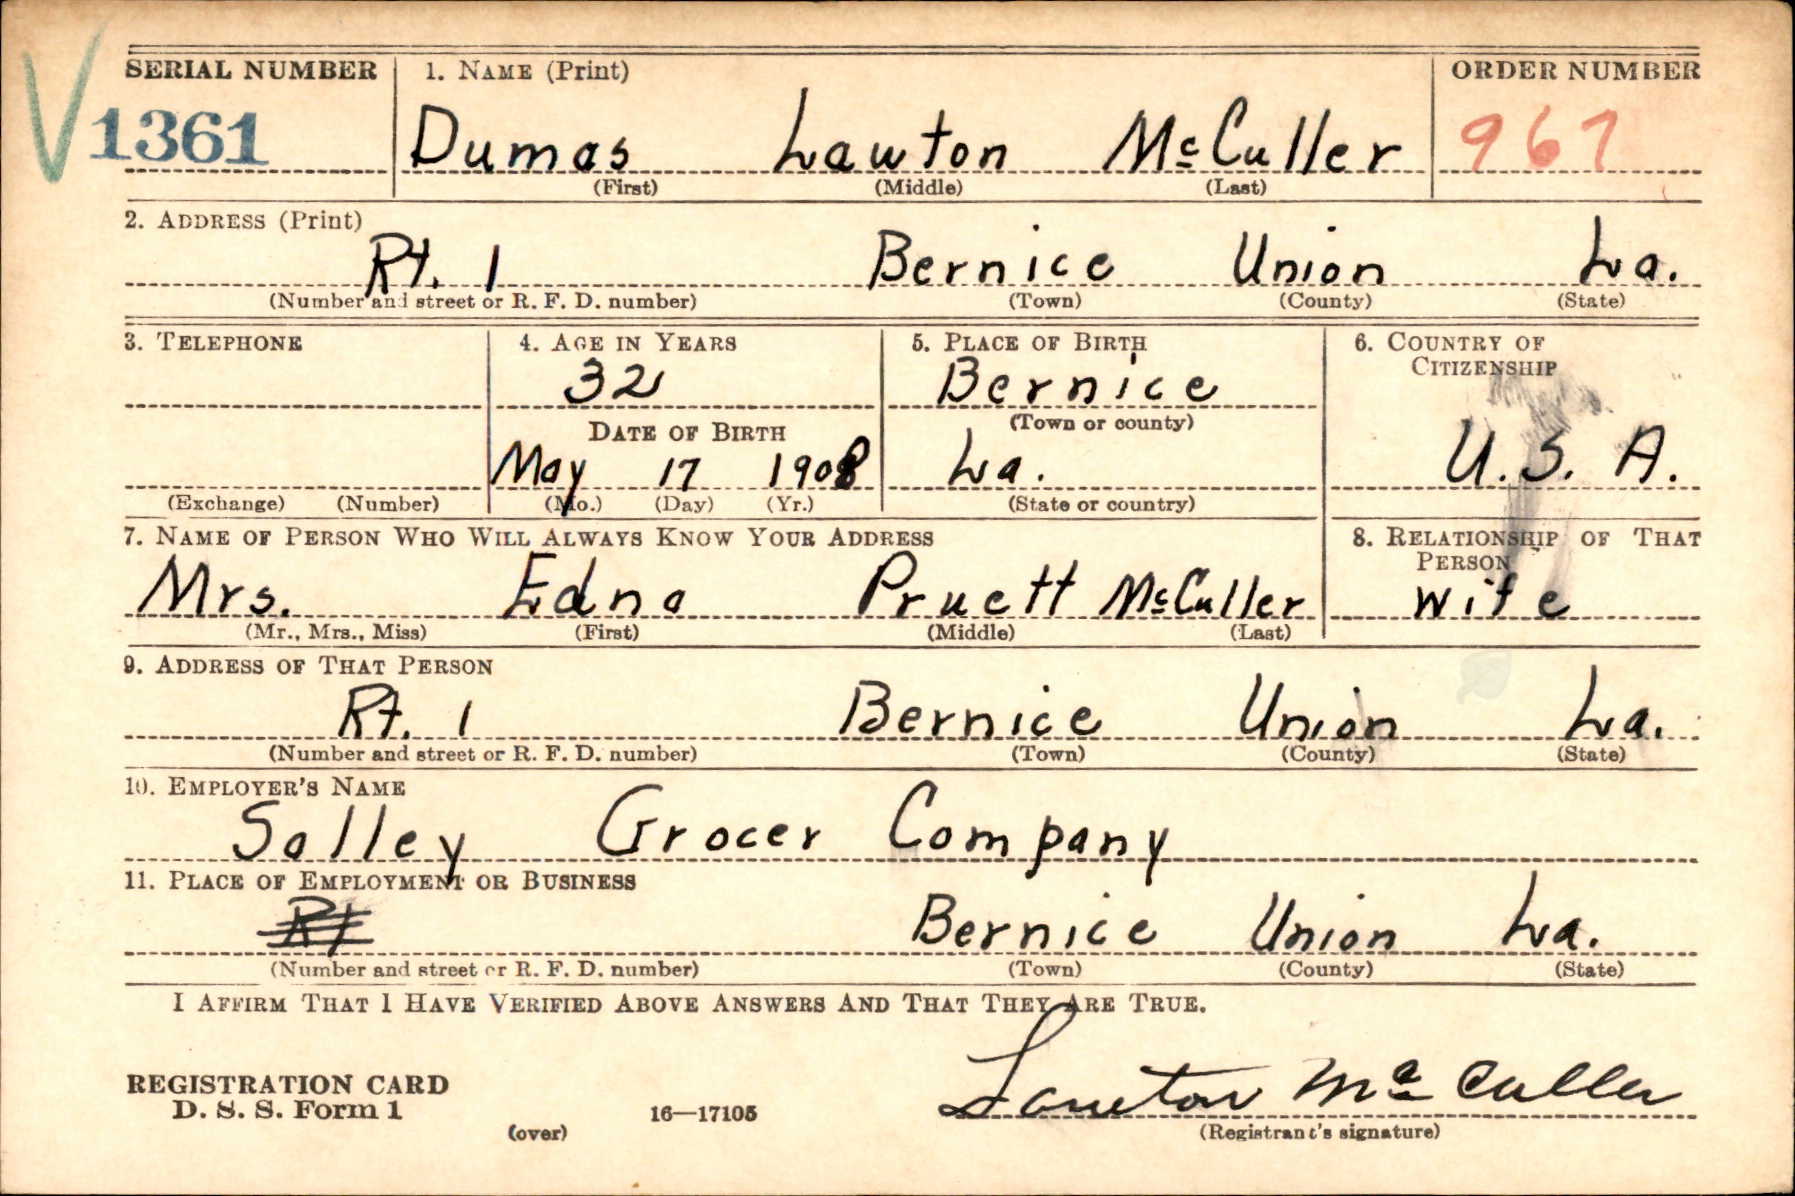 SERIAL NUMBER 1. NAME (Print) ORDER NUMBER
1361 Dumas Lawton McCuller 967
(First) (Middle) (Last)
2. ADDRESS (Print)
Rt. 1 Bernice Union La.
(Number and street or R. F. D. number) (Town) (County) (State)
3. TELEPHONE 4. AGE IN YEARS 5. PLACE OF BIRTH 6. COUNTRY OF CITIZENSHIP
32 Bernice
DATE OF BIRTH (Town or county)
May 17 1908 La. U. S. A.
(Exchange) (Number) (Mo.) (Day) (Yr.) (State or country)
7. NAME OF PERSON WHO WILL ALWAYS KNOW YOUR ADDRESS 8. RELATIONSHIP OF THAT PERSON
Mrs. Edna Pruett McCuller wife
(Mr., Mrs., Miss) (First) (Middle) (Last)
9. ADDRESS OF THAT PERSON
Rt. 1 Bernice Union La.
(Number and street or R. F. D. number) (Town) (County) (State)
10. EMPLOYER'S NAME
Salley Grocer Company
11. PLACE OF EMPLOYMENT OR BUSINESS
Rt Bernice Union La.
(Number and street or R. F. D. number) (Town) (County) (State)
I AFFIRM THAT I HAVE VERIFIED ABOVE ANSWERS AND THAT THEY ARE TRUE.
REGISTRATION CARD
D. S. S. Form 1 16—17105 Lawton McCuller
(over) (Registrant's signature)